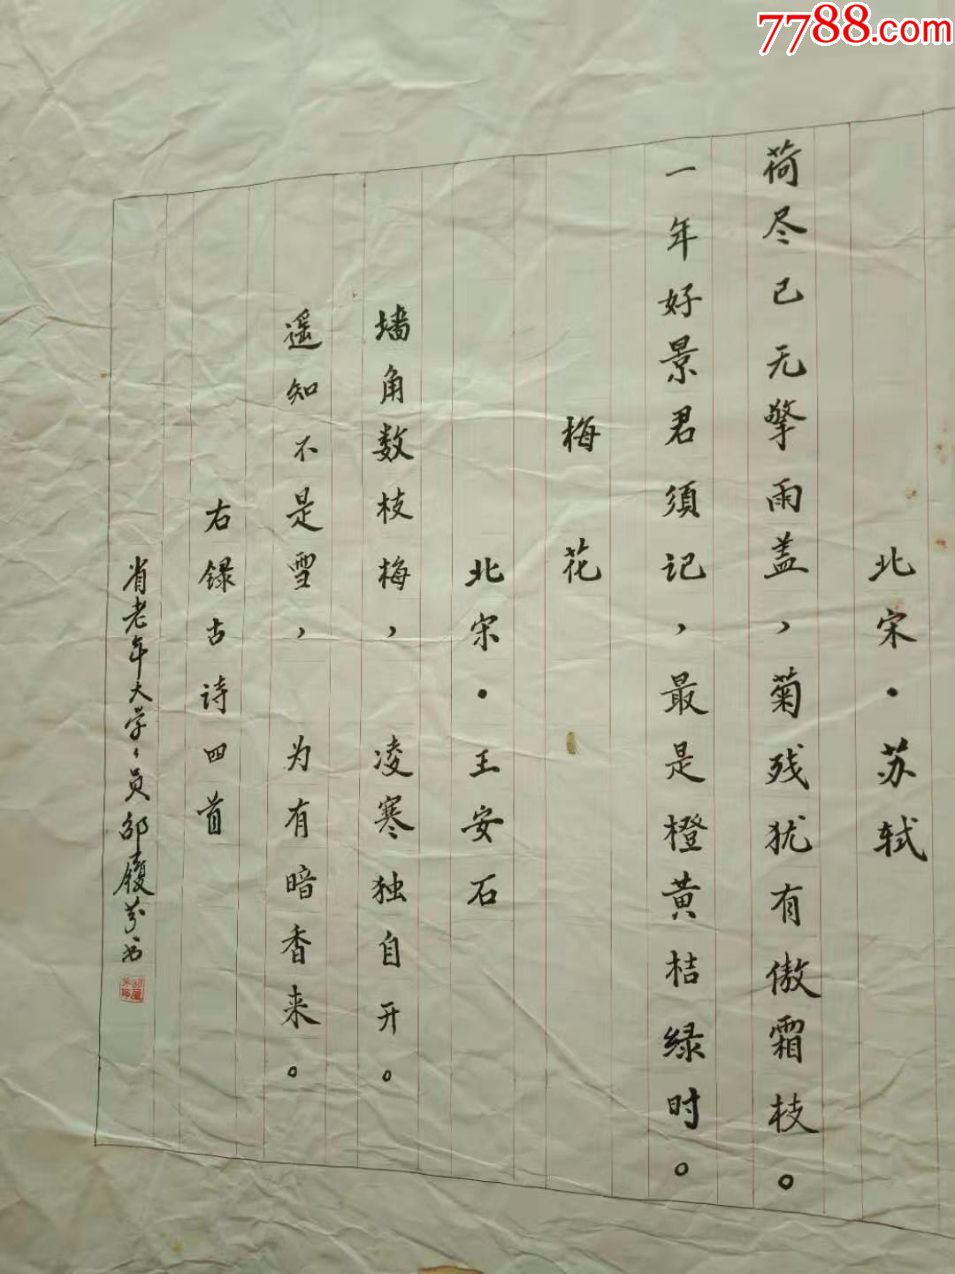 7788.com
北宋·苏轼
荷尽已无擎雨盖，菊残犹有傲霜枝。
一年好景君须记，最是橙黄桔绿时。
梅花
北宋·王安石
墙角数枝梅，凌寒独自开。
遥知不是雪，为有暗香来。
右録古诗四首
省老年大学々员邵履芬书